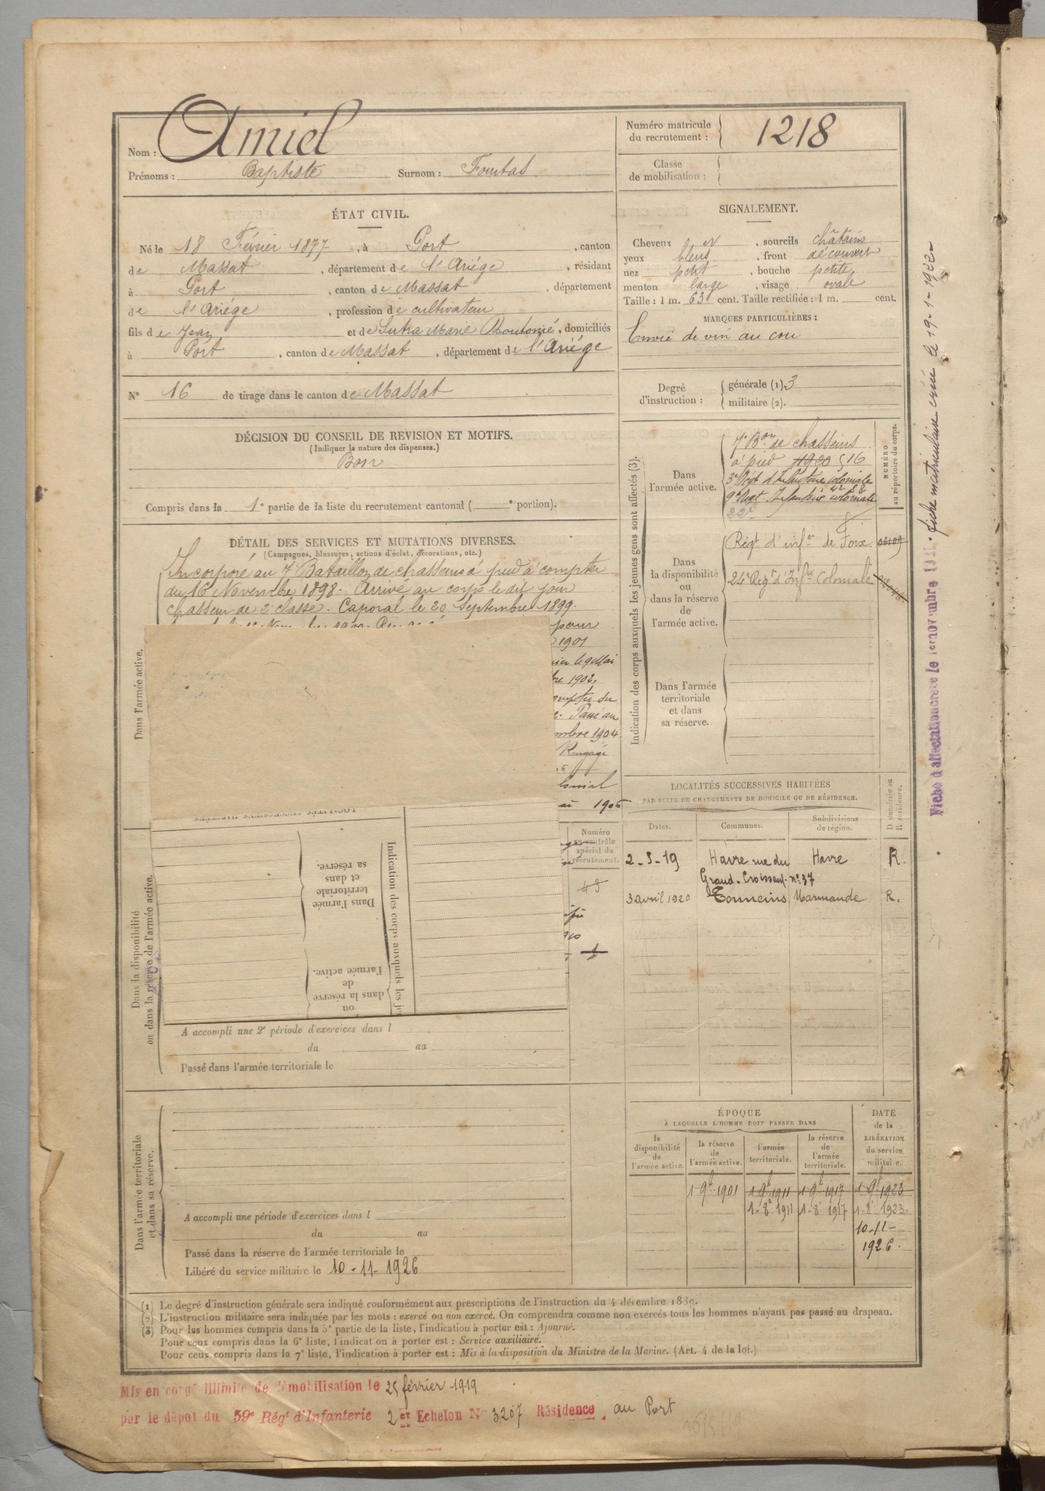 Nom : Amiel
Prénoms : Baptiste Surnom : Fontas
Numéro matricule
du recrutement : 1218
Classe
de mobilisation :
ÉTAT CIVIL.
Né le 18 Février 1877, à Port, canton
de Massat, département de l'Ariége, résidant
à Port, canton de Massat, département
de l'Ariége, profession de cultivateur
fils de Jean et de Sutra Marie, domiciliés
à Port, canton de Massat, département de l'Ariége
N° 16 de tirage dans le canton de Massat
DÉCISION DU CONSEIL DE REVISION ET MOTIFS.
(Indiquer la nature des dispenses.)
Bon
Compris dans la 1e partie de la liste du recrutement cantonal ( e portion).
SIGNALEMENT.
Cheveux , sourcils châtains
yeux bleus, front découvert
nez petit, bouche petite
menton large, visage ovale
Taille : 1 m. 63 cent. Taille rectifiée : 1 m. cent.
MARQUES PARTICULIÈRES :
Envie de vin au cou
Degré
d'instruction :
générale (1). 3
militaire (2).
DÉTAIL DES SERVICES ET MUTATIONS DIVERSES.
(Campagnes, blessures, actions d'éclat, décorations, etc.)
Incorporé au 7e Bataillon de chasseurs à pied à compter
du 16 Novembre 1898. Arrivé au corps le dit jour
chasseur de 2e classe. Caporal le 20 Septembre 1899.
pour
1901
bre 1902
compter du
Passé au
embre 1904
Rengagé
1906
Dans l'armée active.
Dans la disponibilité
ou dans la réserve de l'armée active.
Indication des corps auxquels les jeunes gens sont affectés (3).
NUMÉRO
au répertoire du corps.
Dans
l'armée active.
7e Bon de chasseurs
à pied 1900 516
3e Regt d'Infanterie coloniale
9e Regt Infanterie coloniale
22e
Dans
la disponibilité
ou
dans la réserve de
l'armée active.
Régt d'infie de Foix
24e Régt d'Infie Coloniale
Dans l'armée
territoriale
et dans
sa réserve.
LOCALITÉS SUCCESSIVES HABITÉES
PAR SUITE DE CHANGEMENTS DE DOMICILE OU DE RÉSIDENCE.
Dates. Communes. Subdivisions
de région. D domicile ou
R résidence.
2-3-19 Havre rue du Havre R.
Grand-Croissant n° 37
3 avril 1920 Tonneins Marmande R.
Numéro
au contrôle
spécial du
recrutement.
Indication des corps auxquels les j
Dans l'armée
territoriale
et dans
sa réserve.
ou
dans la réserve
de
l'armée active.
A accompli une 2e période d'exercices dans l
du au
Passé dans l'armée territoriale le
Dans l'armée territoriale
et dans sa réserve.
A accompli une période d'exercices dans l
du au
Passé dans la réserve de l'armée territoriale le
Libéré du service militaire le 10-11-1926
ÉPOQUE
À LAQUELLE L'HOMME DOIT PASSER DANS
DATE
de la
LIBÉRATION
du service
militaire.
la
disponibilité
de
l'armée active.
la réserve
de
l'armée active.
l'armée
territoriale.
la réserve
de
l'armée
territoriale.
1-9bre 1901 1-9bre 1911 1-9bre 1917 1-9bre 1923
1-8e 1911 1-8e 1917 1-8e 1923
10-11-
1926
(1) Le degré d'instruction générale sera indiqué conformément aux prescriptions de l'instruction du 4 décembre 1889.
(2) L'instruction militaire sera indiquée par les mots : exercé ou non exercé. On comprendra comme non exercés tous les hommes n'ayant pas passé au drapeau.
(3) Pour les hommes compris dans la 5e partie de la liste, l'indication à porter est : Ajourné.
Pour ceux compris dans la 6e liste, l'indication à porter est : Service auxiliaire.
Pour ceux compris dans la 7e liste, l'indication à porter est : Mis à la disposition du Ministre de la Marine. (Art. 4 de la loi.)
Mis en congé illimité de démobilisation le 25 février 1919
par le dépôt du 59e Régt d'Infanterie 2er Echelon N° 3207 Résidence au Port
Fiche d'affectation créée le 1er novembre
fiche matriculaire créée le 19-1-1922